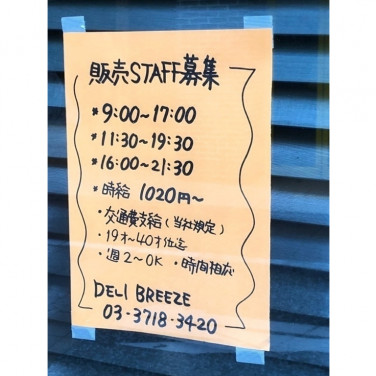 販売STAFF募集
*9:00~17:00
*11:30~19:30
*16:00~21:30
*時給 1020円~
・交通費支給(当社規定)
・19才~40才位迄
・週2~OK ・時間相応
DELI BREEZE
03-3718-3420